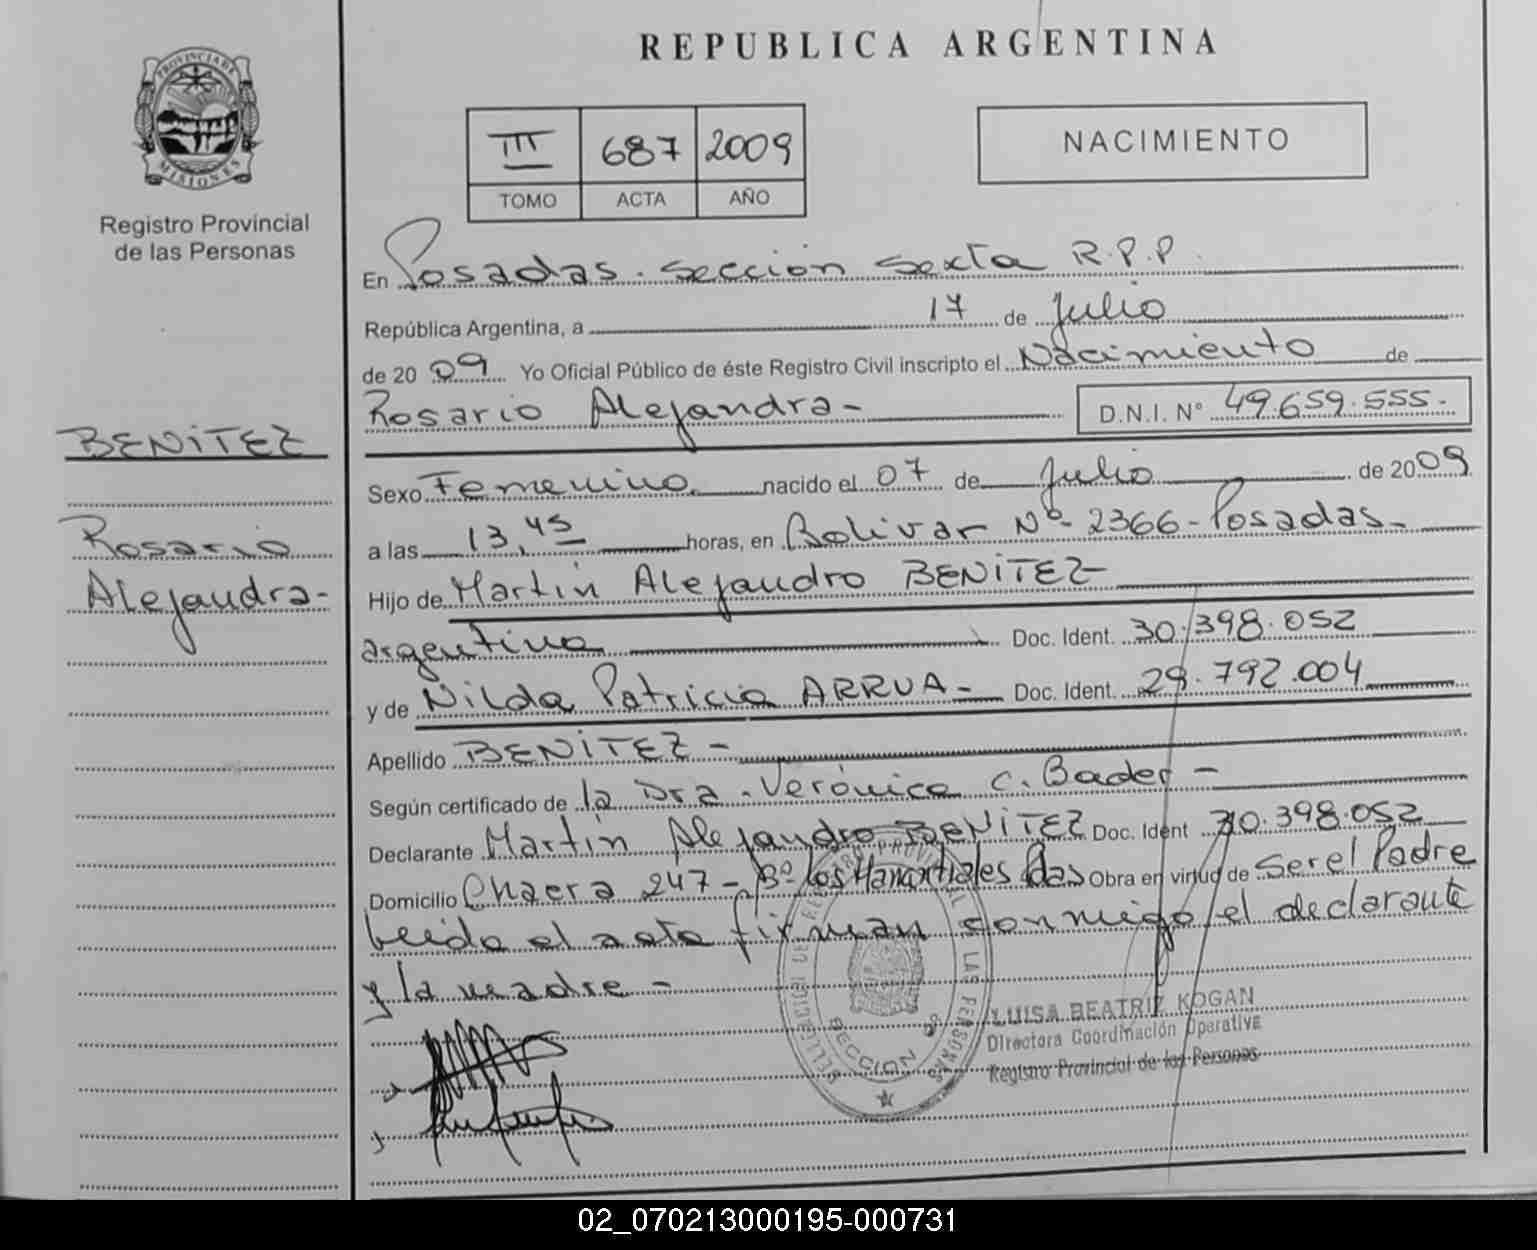 PROVINCIA DE
MISIONES
Registro Provincial
de las Personas
BENITEZ
Rosario
Alejandra-
REPUBLICA ARGENTINA
III 687 2009
TOMO ACTA AÑO
NACIMIENTO
En Posadas. Sección Sexta R.P.P.
República Argentina, a 17 de Julio
de 2009 Yo Oficial Público de éste Registro Civil inscripto el Nacimiento de
Rosario Alejandra- D.N.I. N° 49.659.555.-
Sexo Femenino nacido el 07 de Julio de 2009
a las 13,45 horas, en Bolivar Nº 2366-Posadas-
Hijo de Martin Alejandro BENITEZ-
argentino Doc. Ident. 30.398.052
y de Nilda Patricia ARRUA- Doc. Ident. 29.792.004
Apellido BENITEZ-
Según certificado de la Dra. Verónica C. Bader-
Declarante Martin Alejandro BENITEZ Doc. Ident 30.398.052
Domicilio Chacra 247-Bº Los Manantiales Pdas Obra en virtud de Ser el Padre
Leida el acta firman conmigo el declarante
y la madre-
LUISA BEATRIZ KOGAN
Directora Coordinación Operativa
Registro Provincial de las Personas
SECCION
02_070213000195-000731